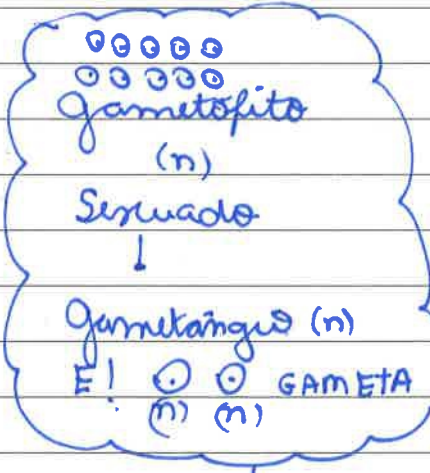 Gametófito
(n)
Sexuado
Gametângio (n)
E! GAMETA
(n) (n)